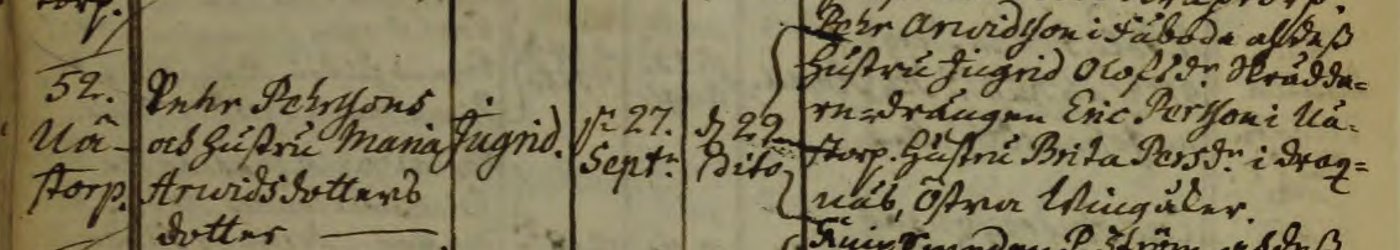 torp.
52.
Uå-
storp.
Pehr Pehrssons
och hustru Maria
Arwidsdotters
dotter
Ingrid.
27.
Sept:r
d 29
dito
Pehr Arvidsson i Fäboda
hustru Ingrid Olofsdr. Skrädda=
re=drängen Eric Persson i Uå-
storp. hustru Brita Persdr. i Drag=
näs, Östra Wingåker.